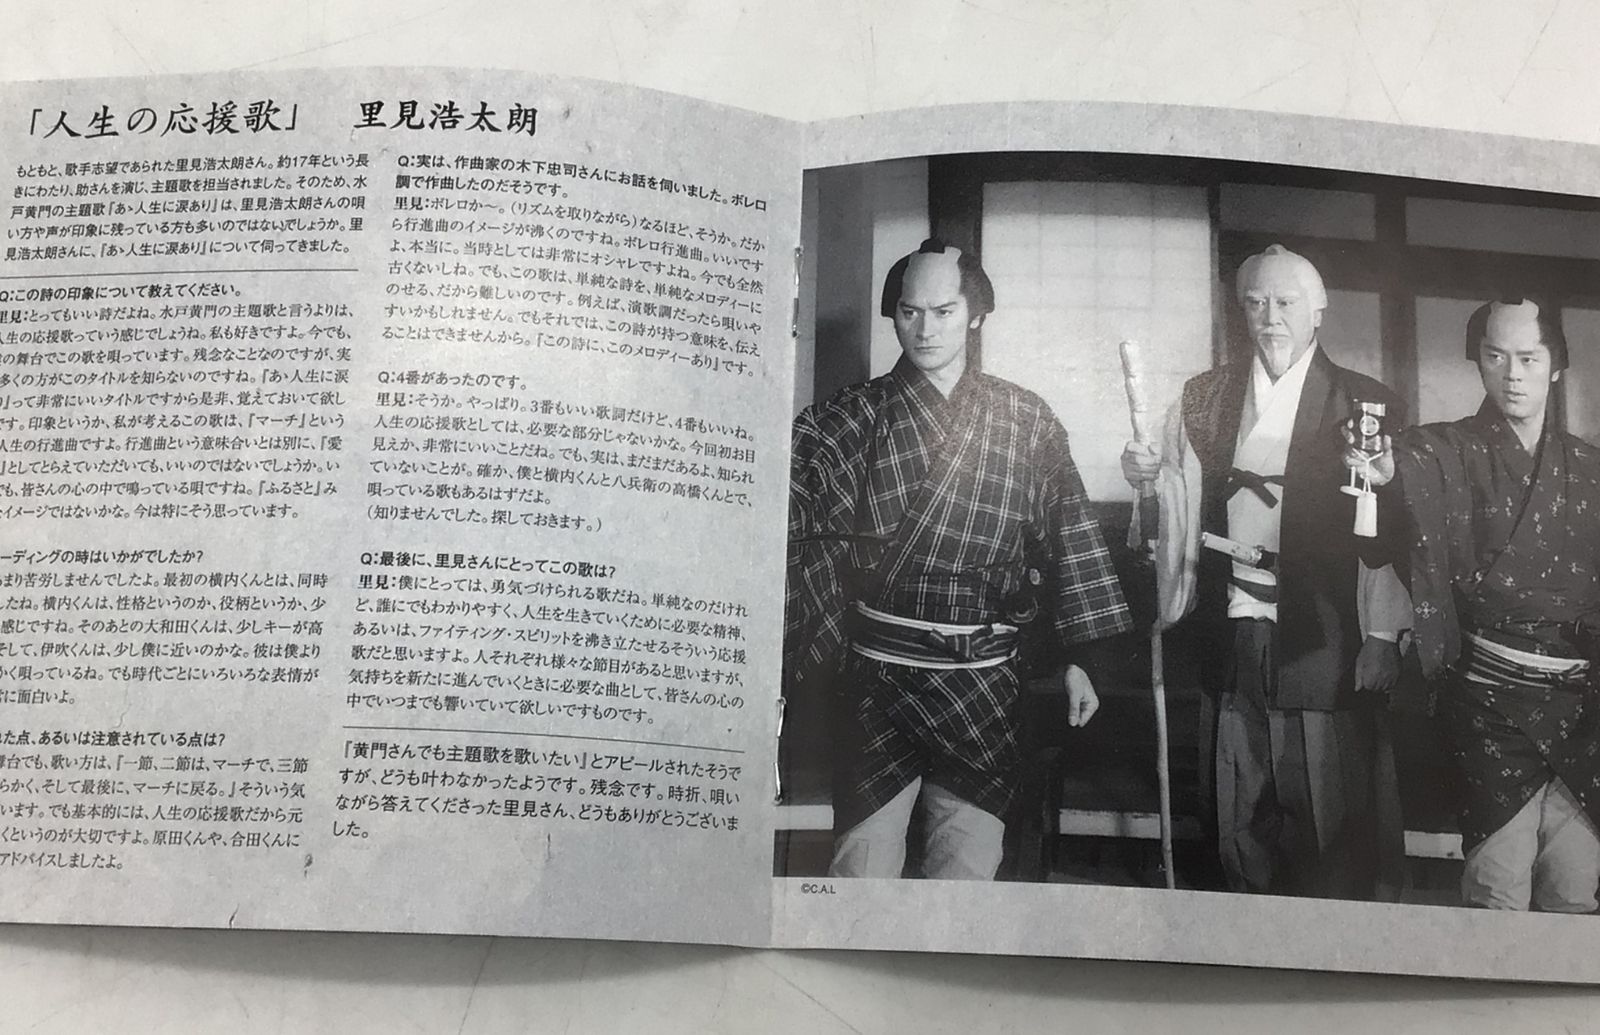 「人生の応援歌」 里見浩太朗
もともと、歌手志望であられた里見浩太朗さん。約17年という長
きにわたり、助さんを演じ、主題歌を担当されました。そのため、水
戸黄門の主題歌『あゝ人生に涙あり』は、里見浩太朗さんの唄
い方や声が印象に残っている方も多いのではないでしょうか。里
見浩太朗さんに、『あゝ人生に涙あり』について伺ってきました。
Q:この詩の印象について教えてください。
里見:とってもいい詩だよね。水戸黄門の主題歌と言うよりは、
人生の応援歌っていう感じでしょうね。私も好きですよ。今でも、
の舞台でこの歌を唄っています。残念なことなのですが、実
多くの方がこのタイトルを知らないのですね。『あゝ人生に涙
り』って非常にいいタイトルですから是非、覚えておいて欲し
です。印象というか、私が考えるこの歌は、『マーチ』という
人生の行進曲ですよ。行進曲という意味合いとは別に、『愛
』としてとらえていただいても、いいのではないでしょうか。い
でも、皆さんの心の中で鳴っている唄ですね。『ふるさと』み
なイメージではないかな。今は特にそう思っています。
ーディングの時はいかがでしたか?
まり苦労しませんでしたよ。最初の横内くんとは、同時
したね。横内くんは、性格というのか、役柄というか、少
感じですね。そのあとの大和田くんは、少しキーが高
そして、伊吹くんは、少し僕に近いのかな。彼は僕より
かく唄っているね。でも時代ごとにいろいろな表情が
常に面白いよ。
れた点、あるいは注意されている点は?
舞台でも、歌い方は、『一節、二節は、マーチで、三節
らかく、そして最後に、マーチに戻る。』そういう気
います。でも基本的には、人生の応援歌だから元
くというのが大切ですよ。原田くんや、合田くんに
アドバイスしましたよ。
Q:実は、作曲家の木下忠司さんにお話を伺いました。ボレロ
調で作曲したのだそうです。
里見:ボレロか〜。(リズムを取りながら)なるほど、そうか。だか
ら行進曲のイメージが沸くのですね。ボレロ行進曲。いいです
よ、本当に。当時としては非常にオシャレですよね。今でも全然
古くないしね。でも、この歌は、単純な詩を、単純なメロディーに
のせる、だから難しいのです。例えば、演歌調だったら唄いや
すいかもしれません。でもそれでは、この詩が持つ意味を、伝え
ることはできませんから。『この詩に、このメロディーあり』です。
Q:4番があったのです。
里見:そうか。やっぱり。3番もいい歌詞だけど、4番もいいね。
人生の応援歌としては、必要な部分じゃないかな。今回初お目
見えか、非常にいいことだね。でも、実は、まだまだあるよ、知られ
ていないことが。確か、僕と横内くんと八兵衛の高橋くんとで、
唄っている歌もあるはずだよ。
(知りませんでした。探しておきます。)
Q:最後に、里見さんにとってこの歌は?
里見:僕にとっては、勇気づけられる歌だね。単純なのだけれ
ど、誰にでもわかりやすく、人生を生きていくために必要な精神、
あるいは、ファイティング・スピリットを沸き立たせるそういう応援
歌だと思いますよ。人それぞれ様々な節目があると思いますが、
気持ちを新たに進んでいくときに必要な曲として、皆さんの心の
中でいつまでも響いていて欲しいですものです。
『黄門さんでも主題歌を歌いたい』とアピールされたそうで
すが、どうも叶わなかったようです。残念です。時折、唄い
ながら答えてくださった里見さん、どうもありがとうございま
した。
©C.A.L